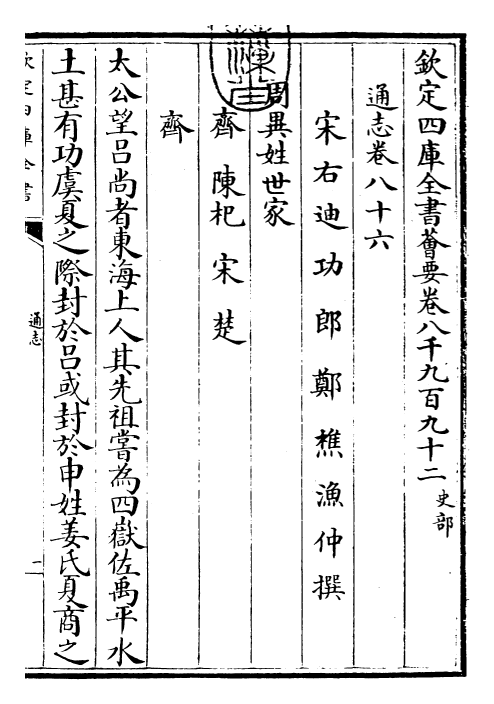 欽定四庫全書薈要卷八千九百九十二史部
通志卷八十六
宋右迪功郎鄭樵漁仲撰
周異姓世家
齊陳杞宋楚
齊
太公望呂尚者東海上人其先祖嘗為四嶽佐禹平水
土甚有功虞夏之際封於呂或封於申姓姜氏夏商之
欽定四庫全書
通志